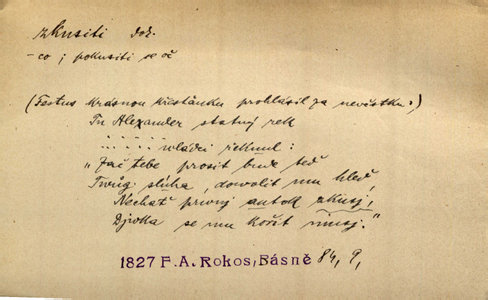 zkusiti dok.
- co; pokusiti se oč
(Festus krásnou křesťanku prohlásil za nevěstku:)
Tu Alexander statný rek
. . . . . . vládci řeknul:
„Zač tebe prosit bude teď
Twůg sluha, dowolit mu hleď,
Nechať prwný autok zkusj,
Djwka se mu kořit musj."
1827 F. A. Rokos, Básně 84, 9,